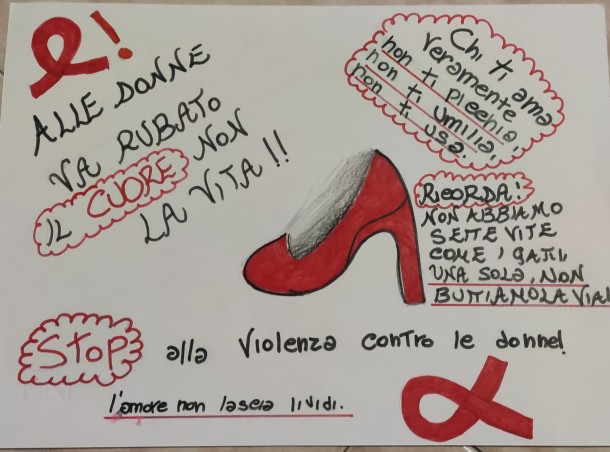 !
ALLE DONNE
VA RUBATO
IL CUORE NON
LA VITA!!
Chi ti ama
veramente
non ti picchia,
non ti umilia,
non ti usa.
RICORDA!
NON ABBIAMO
SETTE VITE
COME I GATTI,
UNA SOLA, NON
BUTTIAMOLA VIA!
STOP alla violenza contro le donne!
l'amore non lascia lividi.